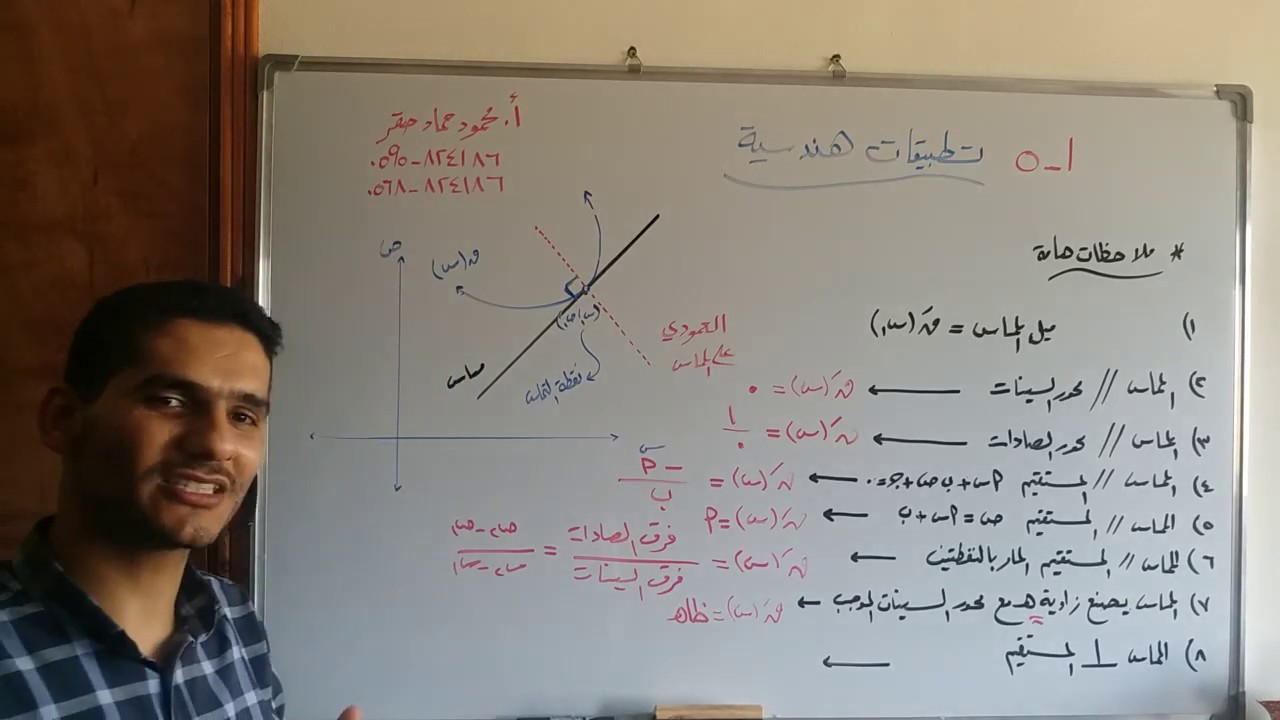 ١-٥ تطبيقات هندسية
أ. محمود حماد صقر
٠٥٩٥-٨٢٤١٨٦
٠٥٦٨-٨٢٤١٨٦
* ملاحظات هامة
١) ميل المماس = قَ(س١)
٢) المماس // محور السينات ← قَ(س) = ٠
٣) المماس // محور الصادات ← قَ(س) = ١/٠
٤) المماس // المستقيم أس + ب ص + جـ = ٠ ← قَ(س) = -أ/ب
٥) المماس // المستقيم ص = أس + ب ← قَ(س) = أ
٦) المماس // المستقيم المار بالنقطتين ← قَ(س) = فرق الصادات/فرق السينات = ص٢-ص١/س٢-س١
٧) المماس يصنع زاوية هـ مع محور السينات الموجب ← قَ(س) = ظاهـ
٨) المماس ⊥ المستقيم ←
ص
ق(س)
(س١، ص١)
العمودي
على المماس
مماس
نقطة التماس
س